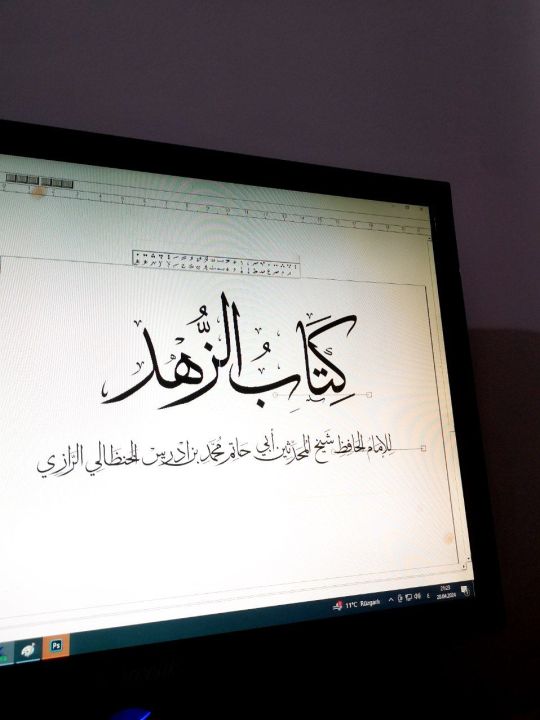 كِتَابُ الزُّهْد
لِلإمَامُ الحَافِظِ شَيخِ المُحَدِّثِين أبي حَاتِم مُحَمَّد بن ادريس الحنظَالي الرَّازي
11°C Rüzgarlı
ع
21:23
20.04.2024
Ps